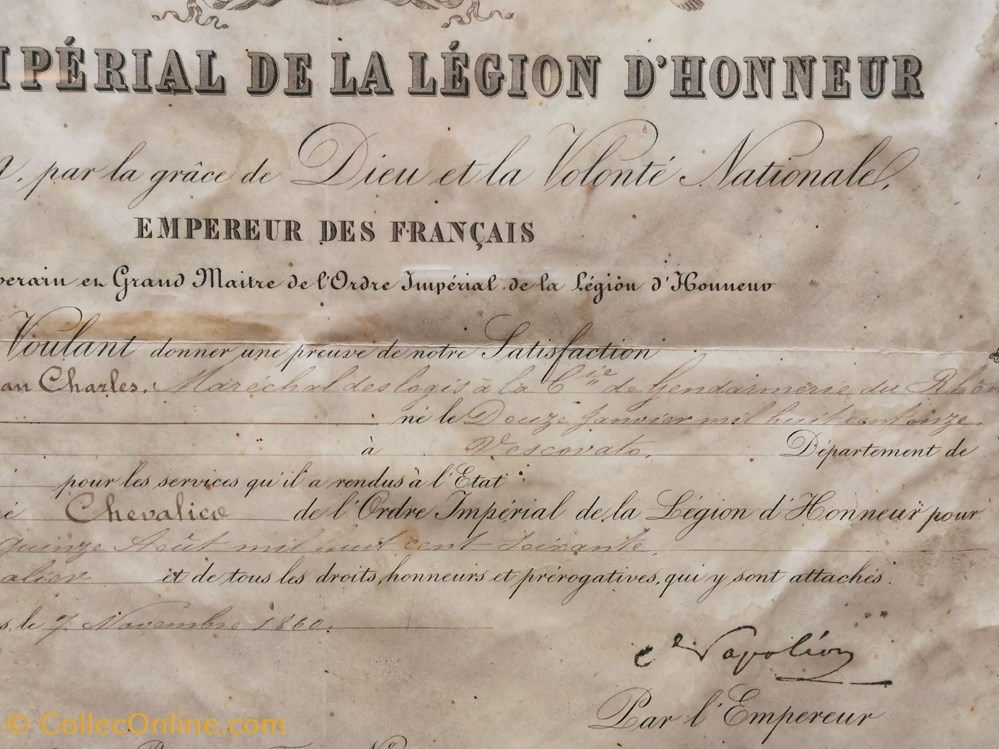 MPÉRIAL DE LA LÉGION D'HONNEUR
par la grâce de Dieu et la Volonté Nationale,
EMPEREUR DES FRANÇAIS
verain en Grand Maitre de l'Ordre Impérial de la Légion d'Honneur
Voulant donner une preuve de notre Satisfaction
an Charles, Maréchal des logis à la Cie de Gendarmerie du Rhôn
né le Douze Janvier mil huit cent onze
à Vescovato. Département de
pour les services qu'il a rendus à l'Etat
é Chevalier de l'Ordre Impérial de la Légion d'Honneur pour
quinze Août mil huit cent Soixante,
alier et de tous les droits, honneurs et prérogatives, qui y sont attachés.
s, le 7 Novembre 1860.
Napoléon
Par l'Empereur
© CollecOnline.com